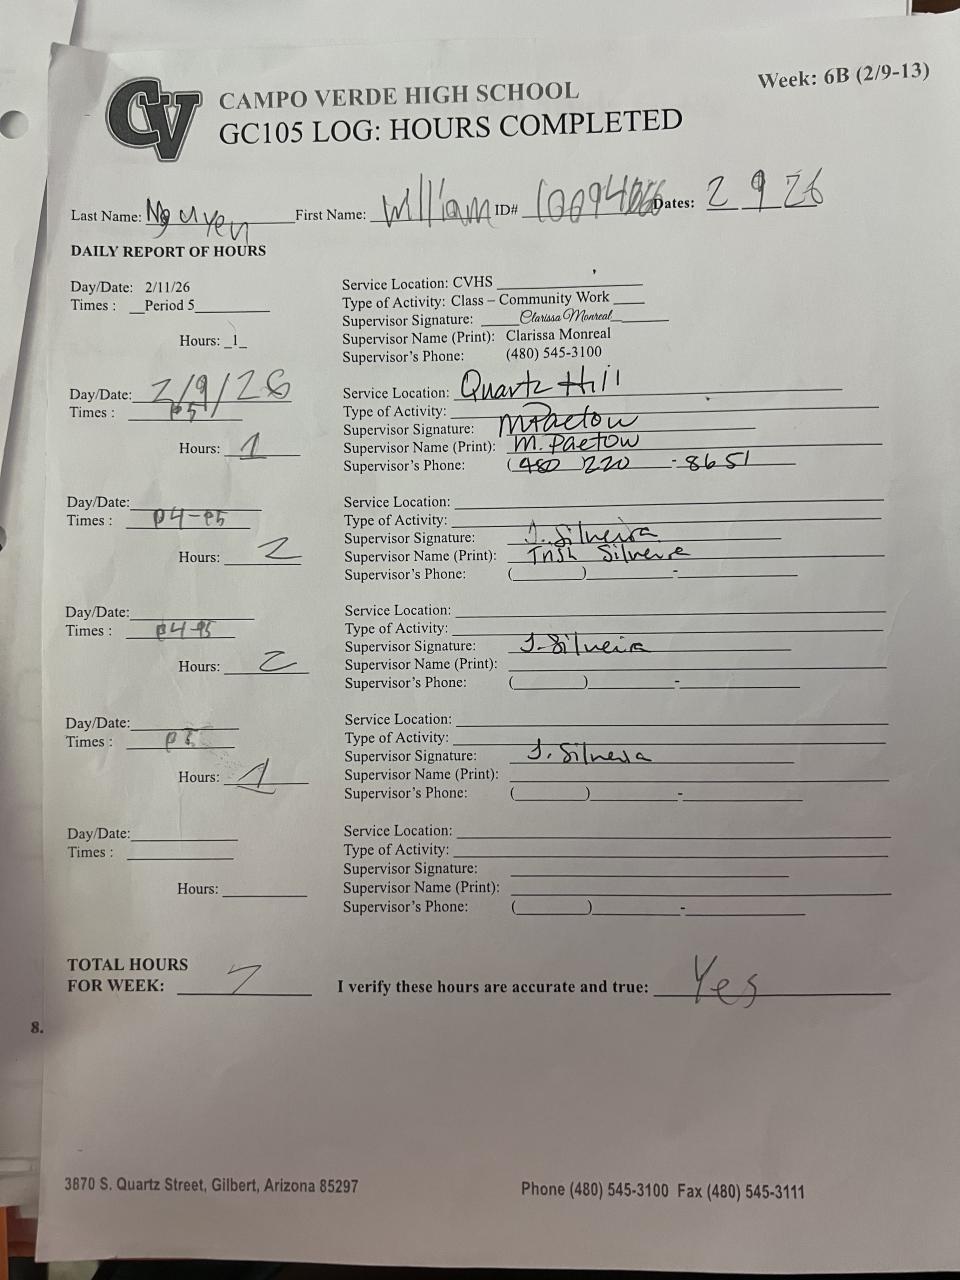 CV
CAMPO VERDE HIGH SCHOOL
Week: 6B (2/9-13)
GC105 LOG: HOURS COMPLETED
Last Name: Nguyen First Name: William ID# Dates: 2 9 26
DAILY REPORT OF HOURS
Day/Date: 2/11/26
Times : __Period 5
Hours: _1_
Service Location: CVHS
Type of Activity: Class – Community Work
Supervisor Signature: Clarissa Monreal
Supervisor Name (Print): Clarissa Monreal
Supervisor's Phone: (480) 545-3100
Day/Date: 2/9/26
Times : P5
Hours: 1
Service Location: Quartz Hill
Type of Activity:
Supervisor Signature: M Paetow
Supervisor Name (Print): M. Paetow
Supervisor's Phone: (480 220 - 8651
Day/Date:
Times : P4-P5
Hours: 2
Service Location:
Type of Activity:
Supervisor Signature: J. Silveira
Supervisor Name (Print): Silveira
Supervisor's Phone: ( ) -
Day/Date:
Times : P4-P5
Hours: 2
Service Location:
Type of Activity:
Supervisor Signature: J. Silveira
Supervisor Name (Print):
Supervisor's Phone: ( ) -
Day/Date:
Times : P5
Hours: 1
Service Location:
Type of Activity:
Supervisor Signature: J. Silveira
Supervisor Name (Print):
Supervisor's Phone: ( ) -
Day/Date:
Times :
Hours:
Service Location:
Type of Activity:
Supervisor Signature:
Supervisor Name (Print):
Supervisor's Phone: ( ) -
TOTAL HOURS
FOR WEEK: 7 I verify these hours are accurate and true: Yes
8.
3870 S. Quartz Street, Gilbert, Arizona 85297
Phone (480) 545-3100 Fax (480) 545-3111